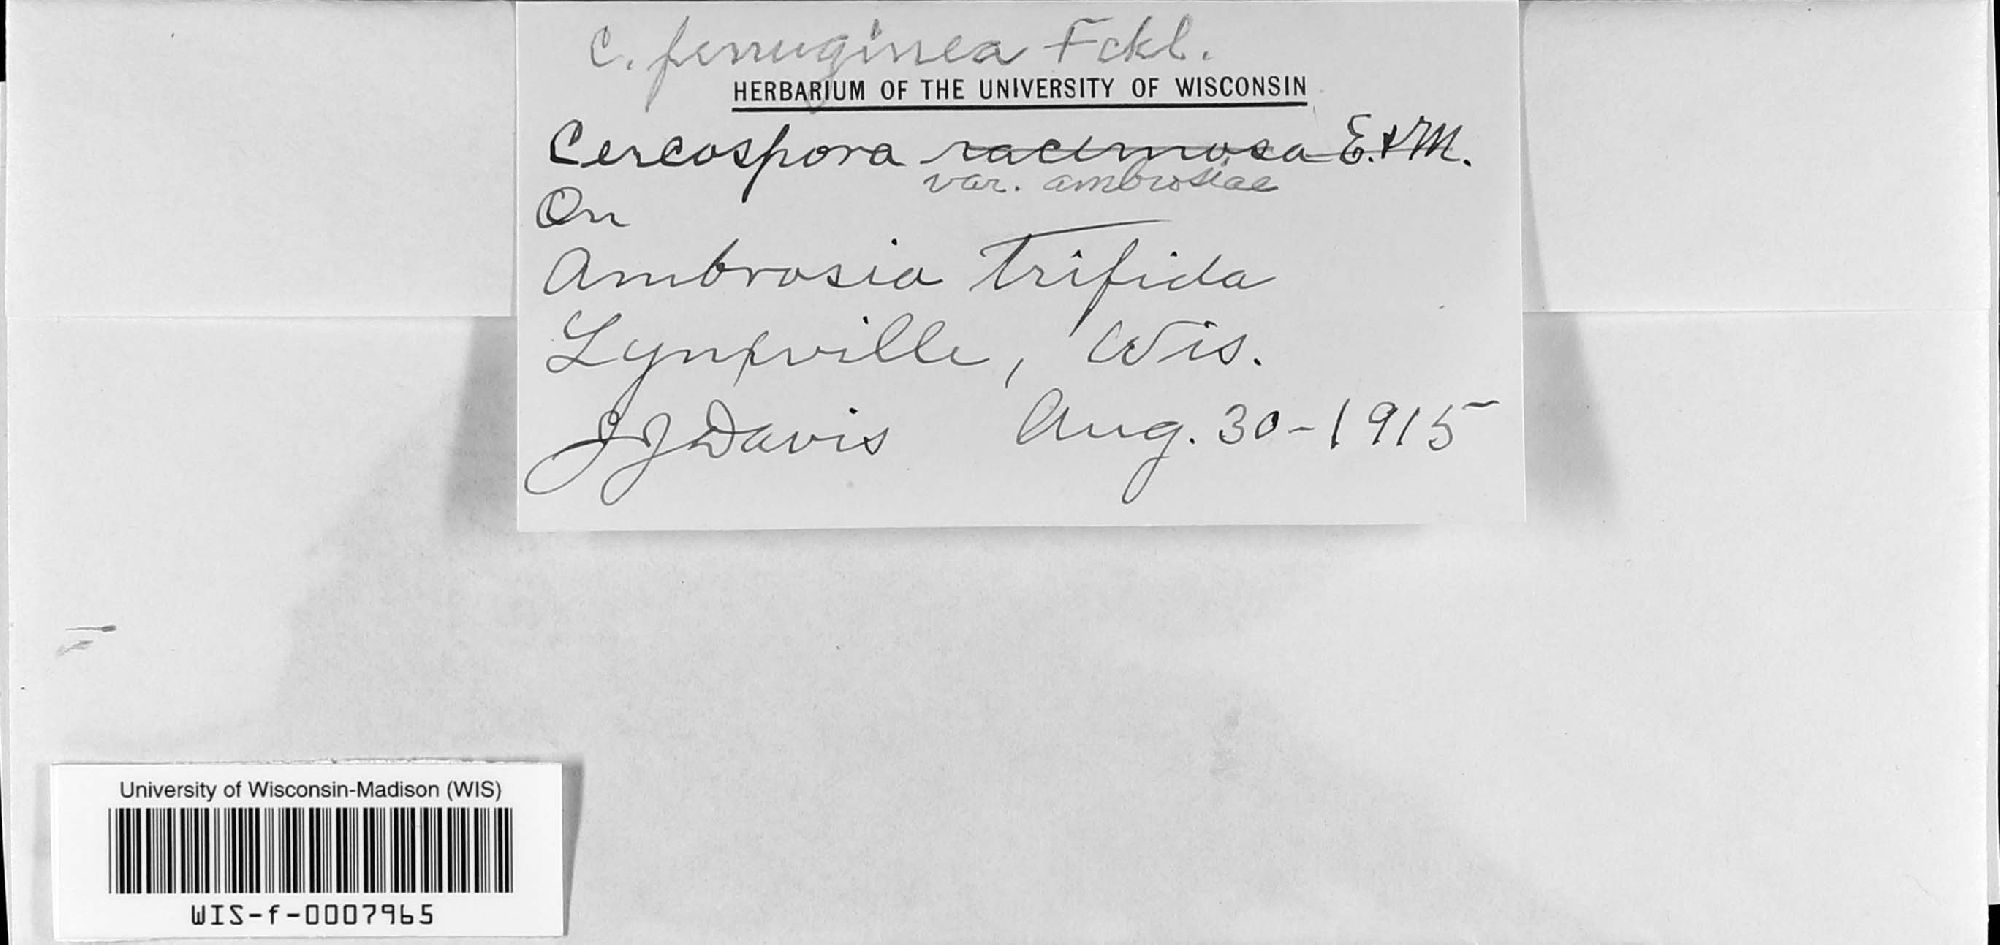 C. ferruginea Fckl.
HERBARIUM OF THE UNIVERSITY OF WISCONSIN
Cercospora racemosa E. & M.
var. ambrosiae
On
Ambrosia trifida
Lynxville, Wis.
JJ Davis Aug. 30-1915
University of Wisconsin-Madison (WIS)
WIS-f-0007965